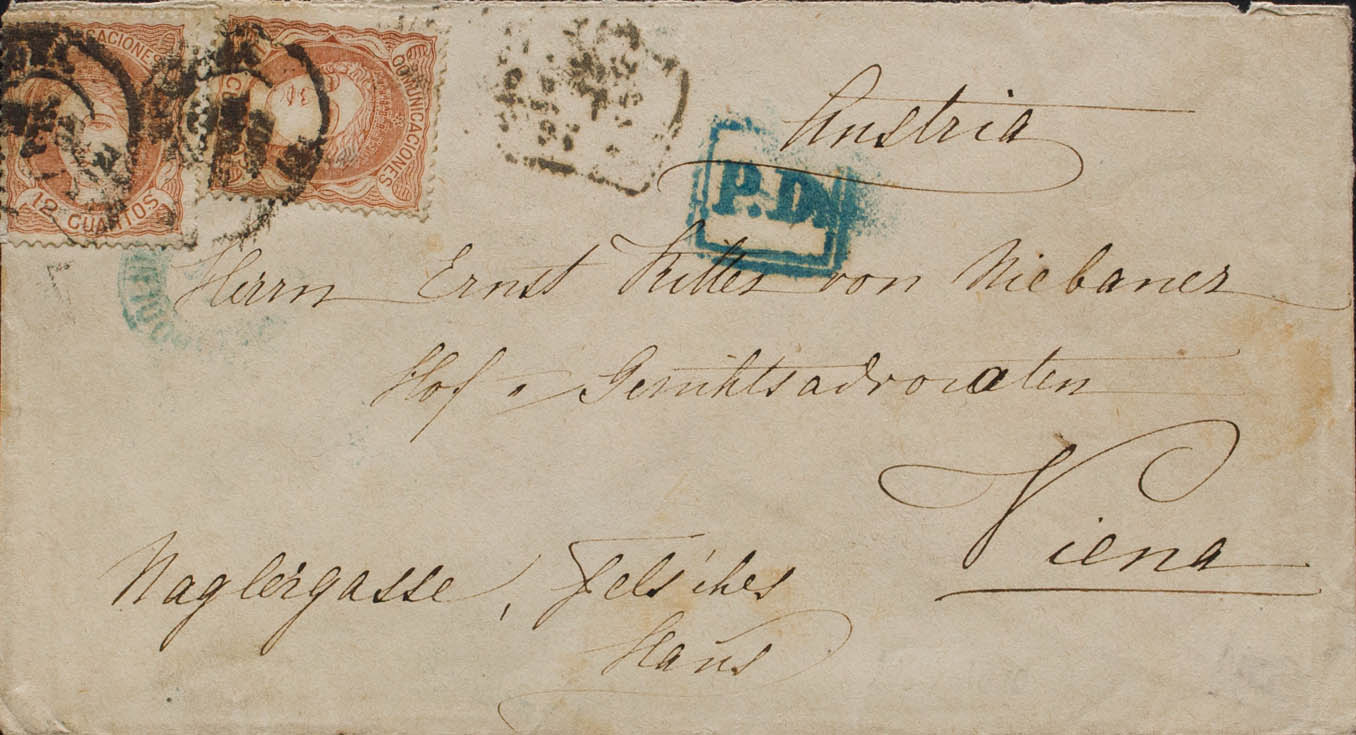 COMUNICACIONES
12 CUARTOS
COMUNICACIONES
P.D.
Austria
Herrn Ernst Ritter von Niebauer
Hof u Gerichtsadvocaten
Viena
Naglergasse, Fels'ches
Haus